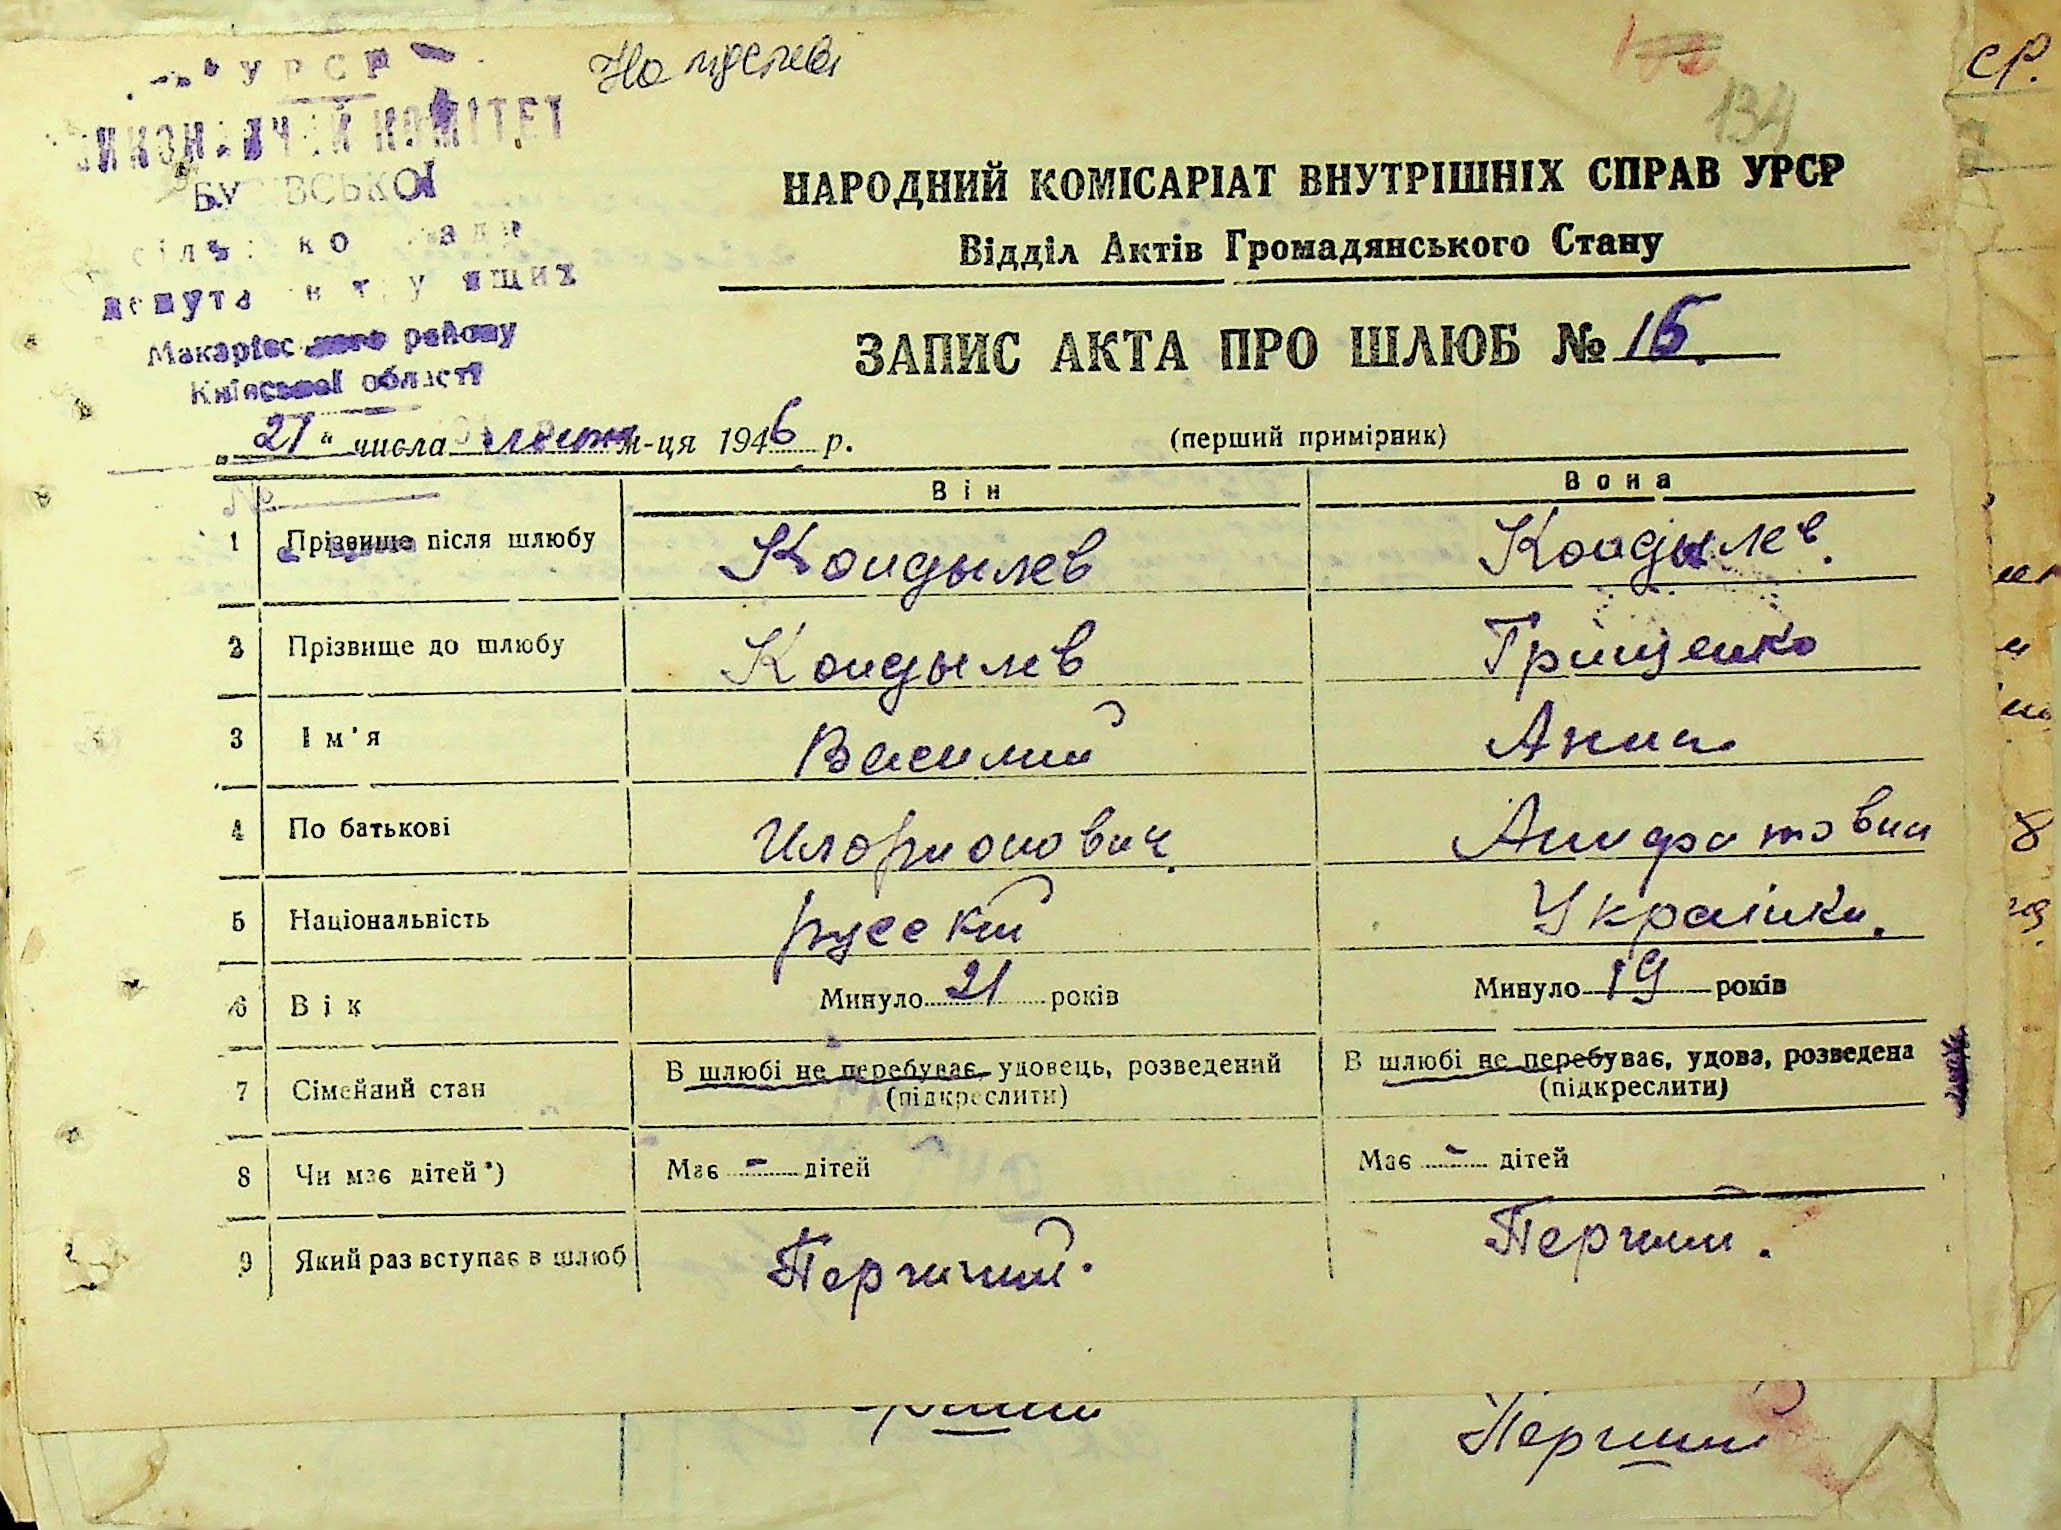 УРСР
ВИКОНАВЧИЙ КОМІТЕТ
сільської ради
депутатів трудящих
Макарівського району
Київської області
134
НАРОДНИЙ КОМІСАРІАТ ВНУТРІШНІХ СПРАВ УРСР
Відділ Актів Громадянського Стану
ЗАПИС АКТА ПРО ШЛЮБ № 15.
„21" числа м-ця 1946 р. (перший примірник)
№ Він Вона
1 Прізвище після шлюбу Кондылев Кондылев.
2 Прізвище до шлюбу Кондылев Грищенко
3 Ім'я Василий Анна
4 По батькові Иларионович.
5 Національність русский Українка.
6 Вік Минуло 21 років Минуло 19 років
7 Сімейний стан В шлюбі не перебуває, удовець, розведений В шлюбі не перебуває, удова, розведена
(підкреслити) (підкреслити)
8 Чи має дітей*) Має - дітей Має - дітей
9 Який раз вступає в шлюб Перший. Перший.
Перший